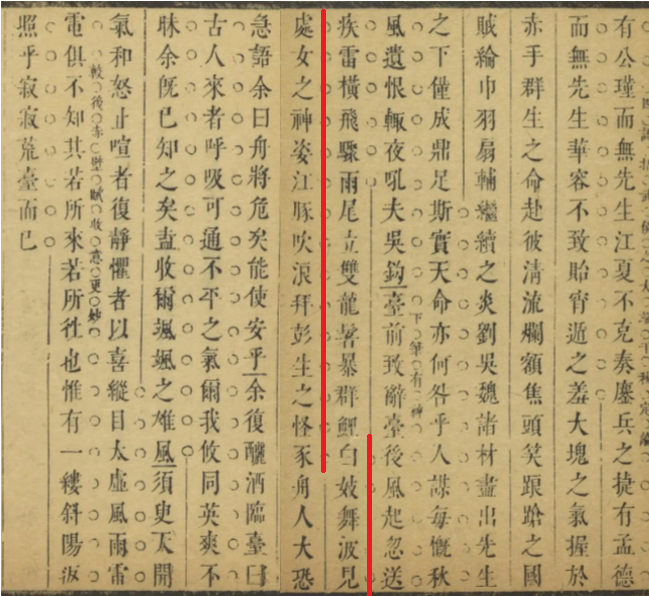 有公瑾而無先生江夏不克奏鏖兵之捷有孟德
而無先生華容不致貽宵遁之羞大塊之氣握於
赤手群生之命赴彼清流爛額焦頭笑踉蹌之國
賊綸巾羽扇輔繼續之炎劉吳魏諸材盡出先生
之下僅成鼎足斯實天命亦何咎乎人謀每慨秋
下筆有神
風遺恨輒夜吼夫吳鈎臺前致辭臺後風起忽送
疾雷橫飛驟雨尾立雙龍暴群鯉白妓舞波見
處女之神姿江豚吹浪拜彭生之怪豕舟人大恐
急語余曰舟將危矣能使安乎余復釃酒臨臺曰
古人來者呼吸可通不平之氣爾我攸同英爽不
昧余旣已知之矣盍收爾颯颯之雄風須臾天開
氣和怒止喧者復靜懼者以喜縱目太虛風雨雷
較後赤壁賦收意更妙
電俱不知其若所來若所徃也惟有一縷斜陽返
照乎寂寂荒臺而已